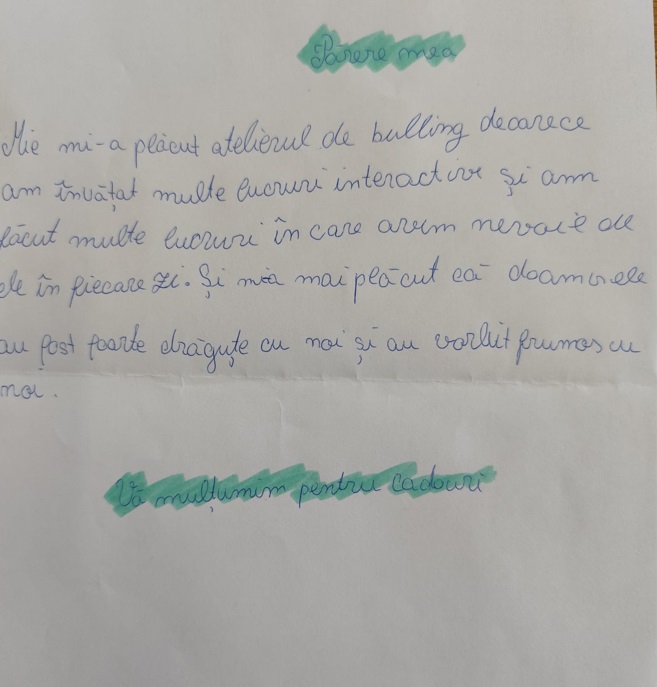 Părere mea
Mie mi-a plăcut atelierul de bulling deoarece
am învățat multe lucruri interactive și am
făcut multe lucruri în care avem nevoie de
ele în fiecare zi. Și mia mai plăcut că doamnele
au fost foarte drăguțe cu noi și au vorbit frumos cu
noi.
Vă mulțumim pentru cadouri